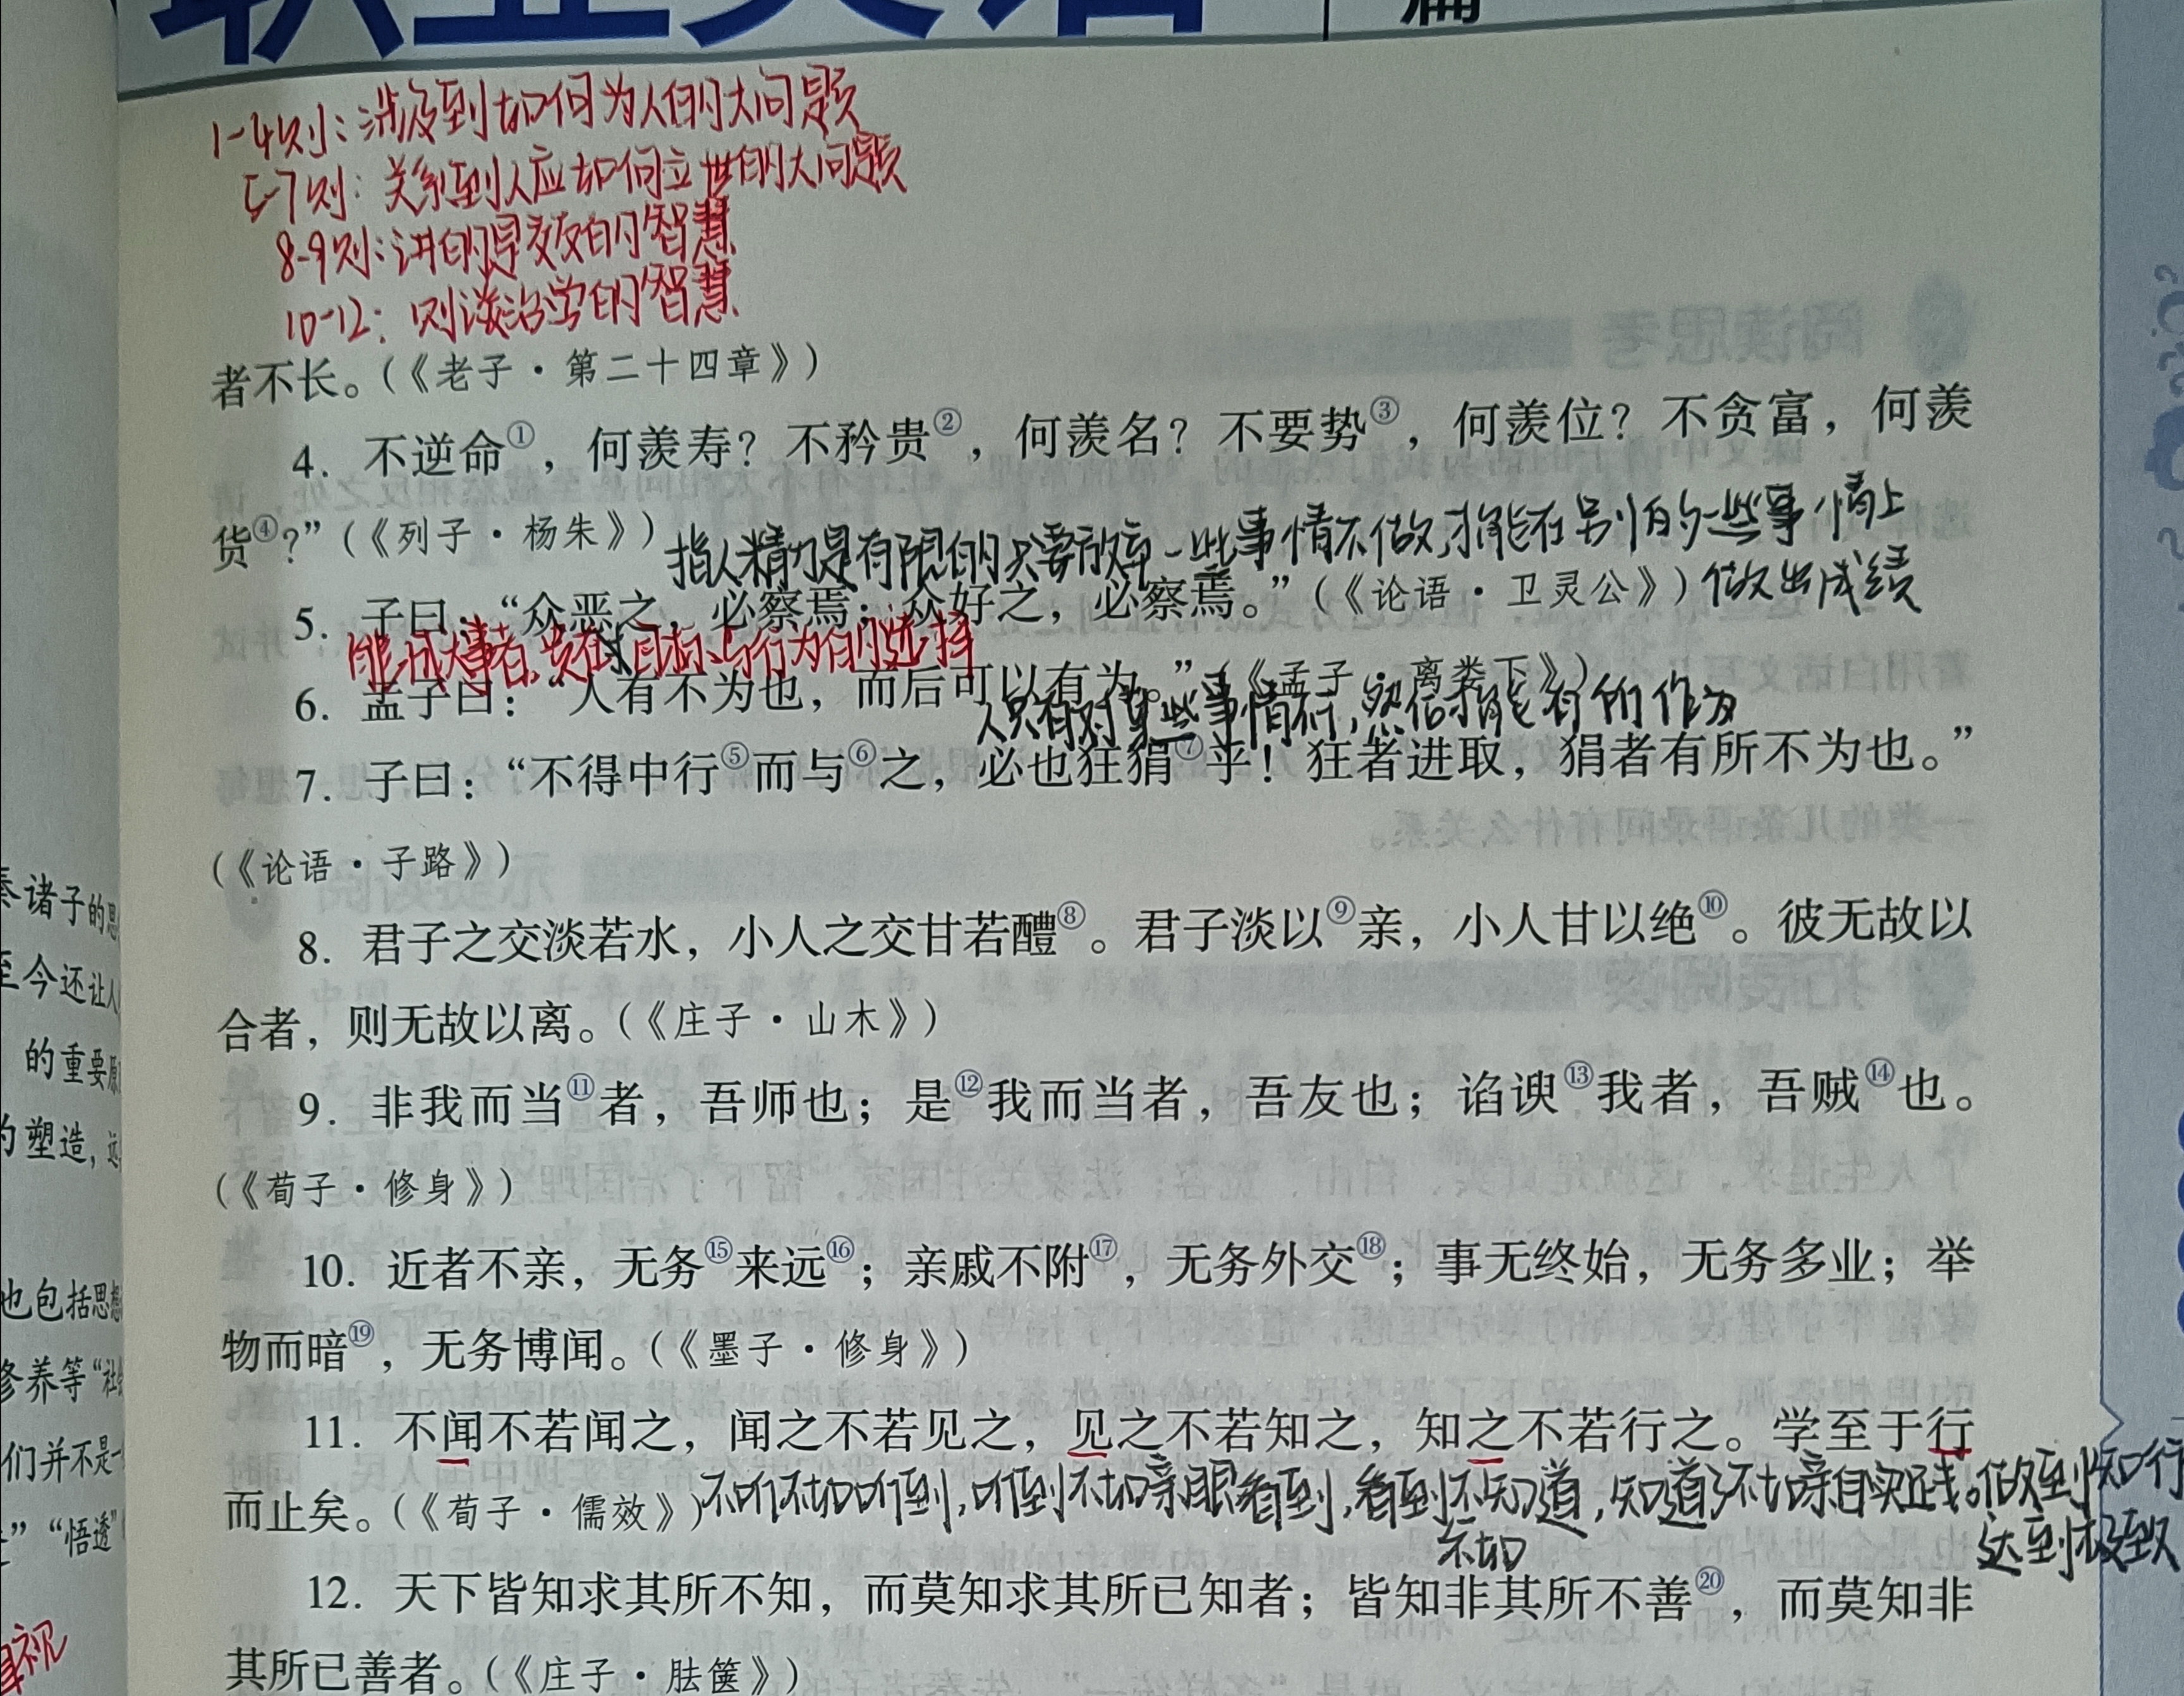 篇
1-4则：涉及到如何为人的大问题
5-7则：关系到人应如何立世的大问题
8-9则：讲的是交友的智慧
10-12：则谈治学的智慧
者不长。（《老子·第二十四章》）
4. 不逆命①，何羡寿？不矜贵②，何羡名？不要势③，何羡位？不贪富，何羡
货④？”（《列子·杨朱》）
指人精力是有限的只要放弃一些事情不做，才能在另外的一些事情上
做出成绩
5. 子曰：“众恶之，必察焉；众好之，必察焉。”（《论语·卫灵公》）
能成大事者，贵在对目标与行为的选择
6. 孟子曰：“人有不为也，而后可以有为。”（《孟子·离娄下》）
人只有对某些事情不行，然后才能有所作为
7. 子曰：“不得中行⑤而与⑥之，必也狂狷⑦乎！狂者进取，狷者有所不为也。”
（《论语·子路》）
8. 君子之交淡若水，小人之交甘若醴⑧。君子淡以⑨亲，小人甘以绝⑩。彼无故以
合者，则无故以离。（《庄子·山木》）
9. 非我而当⑪者，吾师也；是⑫我而当者，吾友也；谄谀⑬我者，吾贼⑭也。
（《荀子·修身》）
10. 近者不亲，无务⑮来远⑯；亲戚不附⑰，无务外交⑱；事无终始，无务多业；举
物而暗⑲，无务博闻。（《墨子·修身》）
11. 不闻不若闻之，闻之不若见之，见之不若知之，知之不若行之。学至于行
而止矣。（《荀子·儒效》）
不听不如听到，听到不如亲眼看到，看到不知道，知道了不如亲自实践。做到知行
不如
达到极致
12. 天下皆知求其所不知，而莫知求其所已知者；皆知非其所不善⑳，而莫知非
其所已善者。（《庄子·胠箧》）
诸子的思
至今还让人
的重要原
的塑造，远
也包括思想
修养等“社会
们并不是一
”“悟透”
视